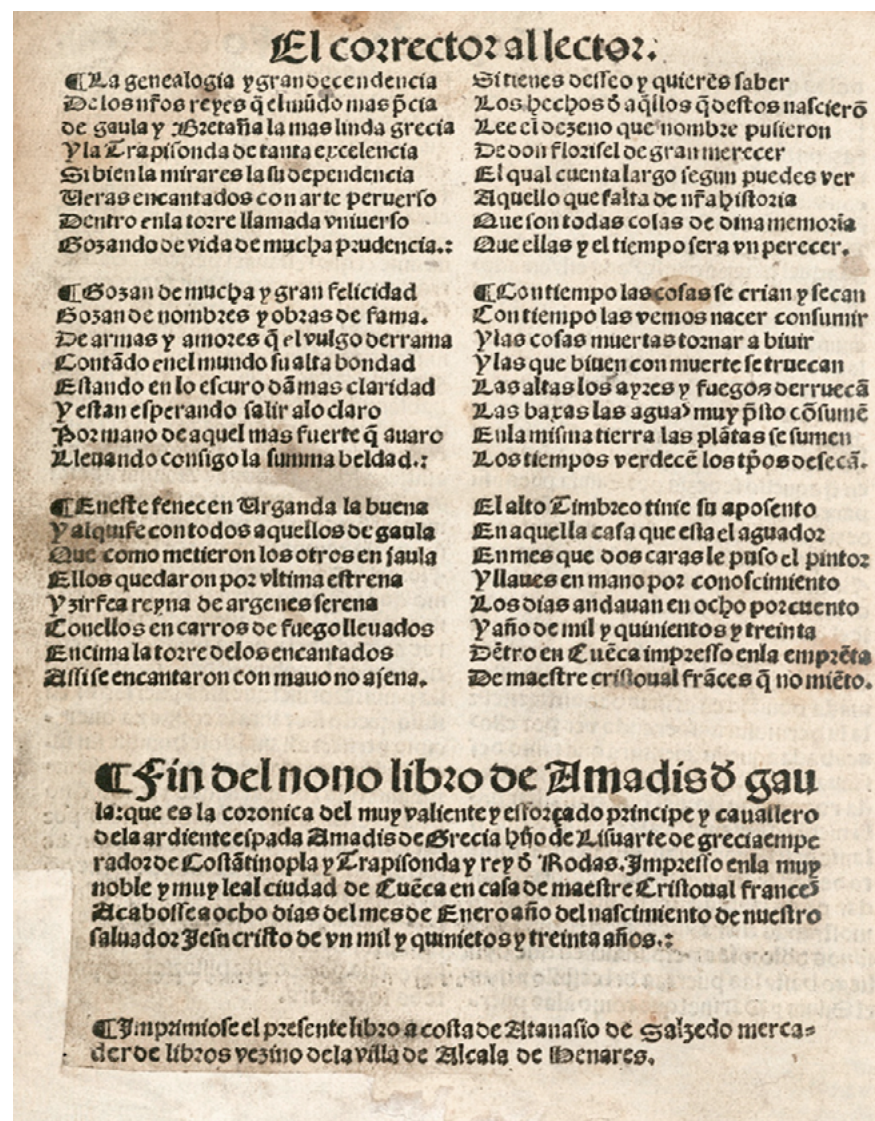 El corrector al lector.
¶La genealogia y gran decendencia
De los nr̃os reyes q̃ el mũdo mas p̃cia
de gaula y Bretaña la mas linda grecia
Y la Trapisonda de tanta excelencia
Si bien la mirares la su dependencia
Ueras encantados con arte peruerso
Dentro enla torre llamada vniuerso
Gozando de vida de mucha prudencia.:
¶Gozan de mucha y gran felicidad
Gozan de nombres y obras de fama.
De armas y amores q̃ el vulgo derrama
Contãdo enel mundo su alta bondad
Estando en lo escuro dã mas claridad
Y estan esperando salir alo claro
Por mano de aquel mas fuerte q̃ auaro
Lleuando consigo la summa beldad.:
¶Eneste fenecen Urganda la buena
Y alquife con todos aquellos de gaula
Que como metieron los otros en jaula
Ellos quedaron por vltima estrena
Y zirfea reyna de argenes serena
Conellos en carros de fuego lleuados
Encima la torre delos encantados
Assi se encantaron con mauo no ajena.
Si tienes desseo y quierẽs saber
Los hechos d̃ aq̃llos q̃ destos nascierõ
Lee el dezeno que nombre pusieron
De don florisel de gran merecer
El qual cuenta largo segun puedes ver
Aquello que falta de nr̃a historia
Que son todas cosas de dina memoria
Que ellas y el tiempo sera vn perecer.
¶Con tiempo las cosas se crian y secan
Con tiempo las vemos nacer consumir
Y las cosas muertas tornar a biuir
Y las que biuen con muerte se truecan
Las altas los ayres y fuegos derruecã
Las baxas las aguas muy p̃sto cõsumẽ
Enla misma tierra las plãtas se sumen
Los tiempos verdecẽ los tp̃os desecã.
El alto Timbreo tinie su aposento
En aquella casa que esta el aguador
En mes que dos caras le puso el pintor
Y llaues en mano por conoscimiento
Los dias andauan en ocho por cuento
Y año de mil y quinientos y treinta
Dẽtro en Cuẽca impresso enla emprẽta
De maestre cristoual frãces q̃ no miẽto.
¶Fin del nono libro de Amadis d̃ gau
la: que es la coronica del muy valiente y esforçado principe y cauallero
dela ardiente espada Amadis de Grecia hijo de Lisuarte de grecia empe
rador de Costãtinopla y Trapisonda y rey d̃ Rodas. Impresso enla muy
noble y muy leal ciudad de Cuẽca en casa de maestre Cristoual frances
Acabosse a ocho dias del mes de Enero año del nascimiento de nuestro
saluador Jesu cristo de vn mil y quinietos y treinta años.:
¶Imprimiose el presente libro a costa de Atanasio de Salzedo merca=
der de libros vezino dela villa de Alcala de Henares.